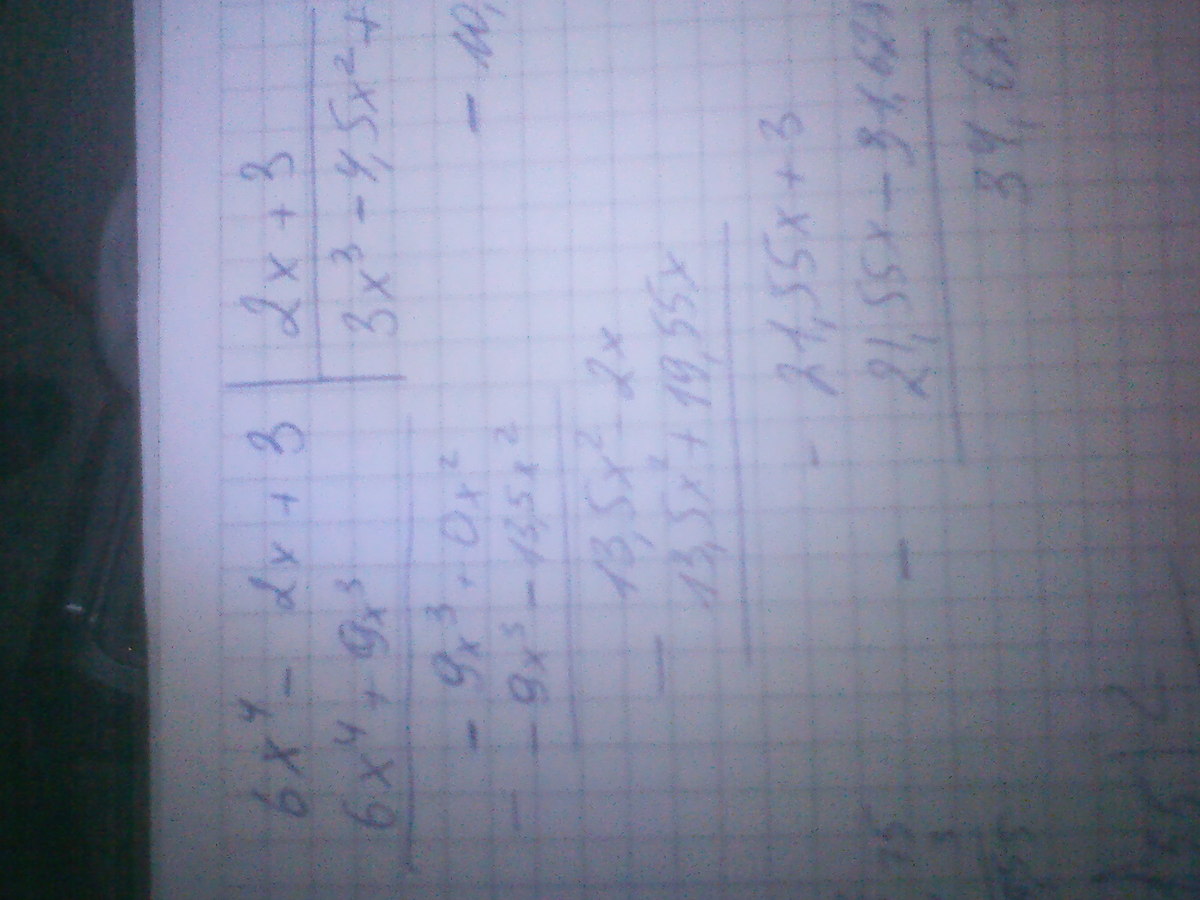 6x⁴ - 2x + 3 | 2x + 3
6x⁴ + 9x³ | 3x³ - 4,5x² +
- 9x³ + 0x² - 10,
- - 9x³ - 13,5x²
13,5x² - 2x
- 13,5x² + 19,55x
- 21,55x + 3
- 21,55x - 31,62
34, 62
15
3